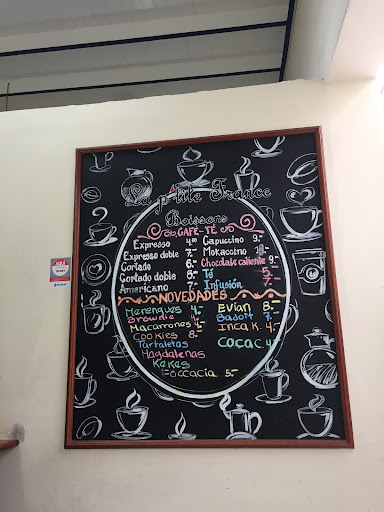 La p'tite France
Boissons
CAFÉ-TÉ
Expresso 4.00
Expresso doble 7.-
Cortado 6.-
Cortado doble 8.-
Americano 7.-
Capuccino 9.-
Mokaccino
Chocolate caliente 9.-
Té 5.-
Infusión 7.-
NOVEDADES
Merengues 4.-
Brownie 4.-
Macarrones 4.-
Cookies 8.-
Tartaletas
Magdalenas
Kekes
Foccacia 5.-
EVIAN 8.-
Inca K. 4.-
COCA C. 4.-
AQUÍ